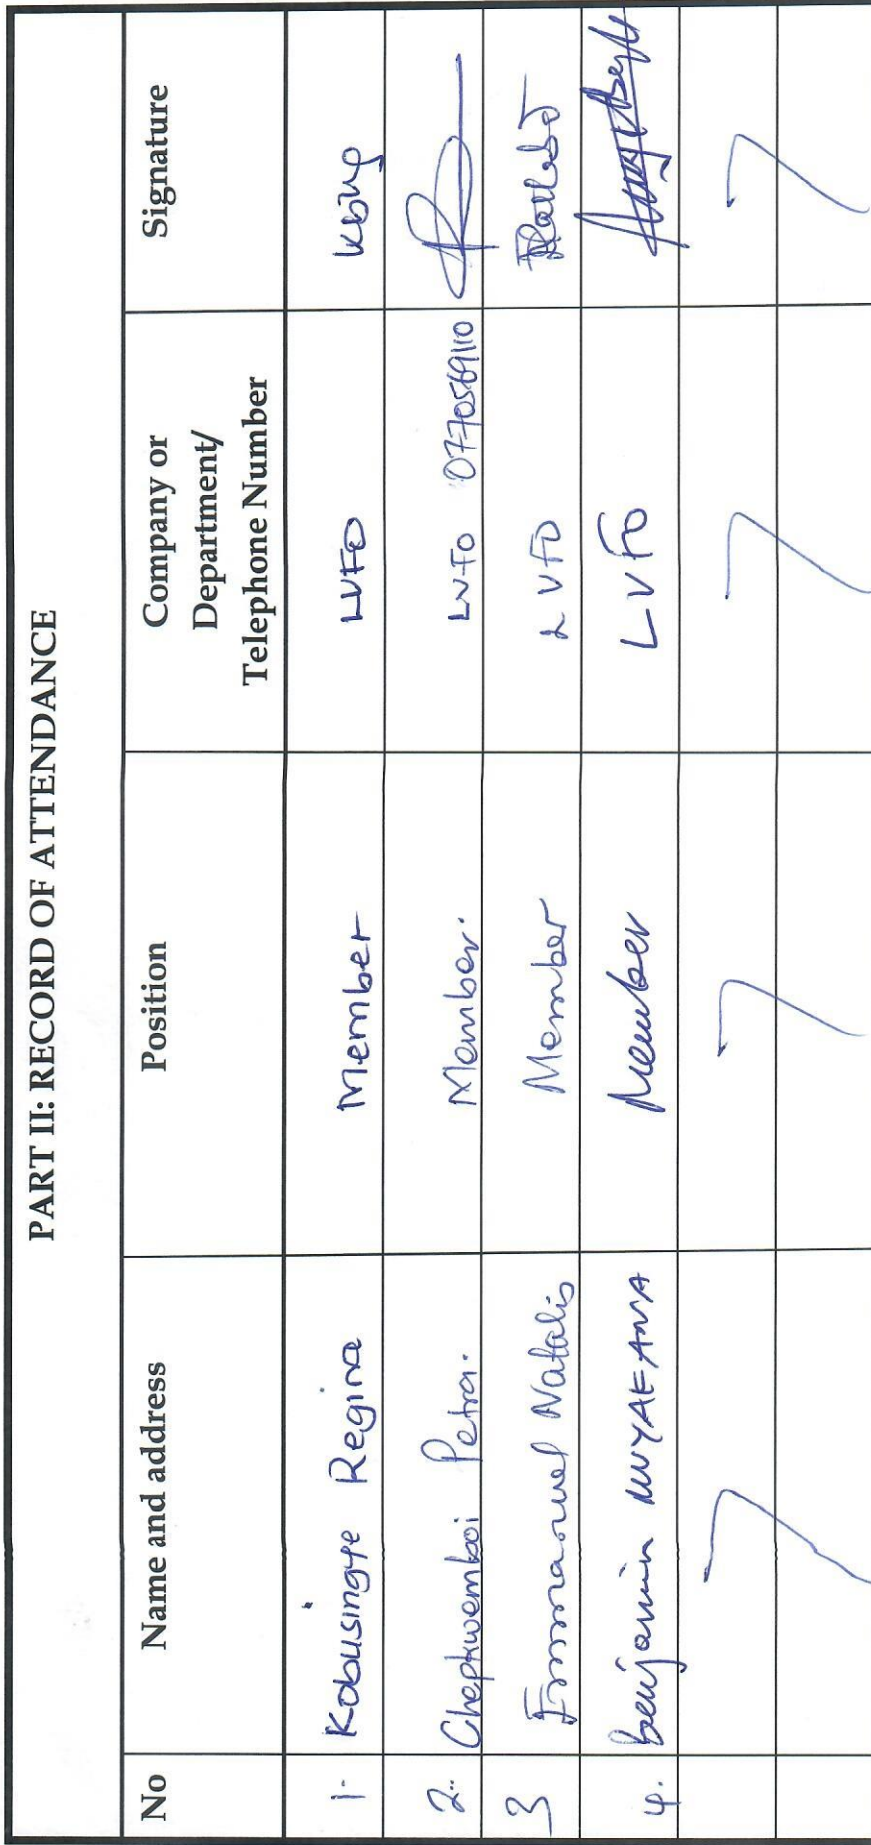 PART II: RECORD OF ATTENDANCE
No Name and address Position Company or Department/ Telephone Number Signature
1- Kobusingye Regina Member LVFO
2. Chepkwemboi Petra. Member. LVFO
3 Emmanuel Natalis Member LVFO
4. Benjamin Member LVFO